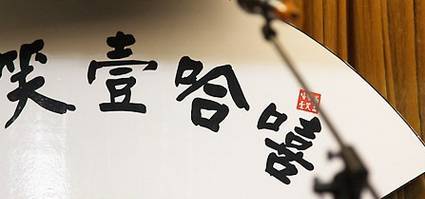 嘻哈壹笑